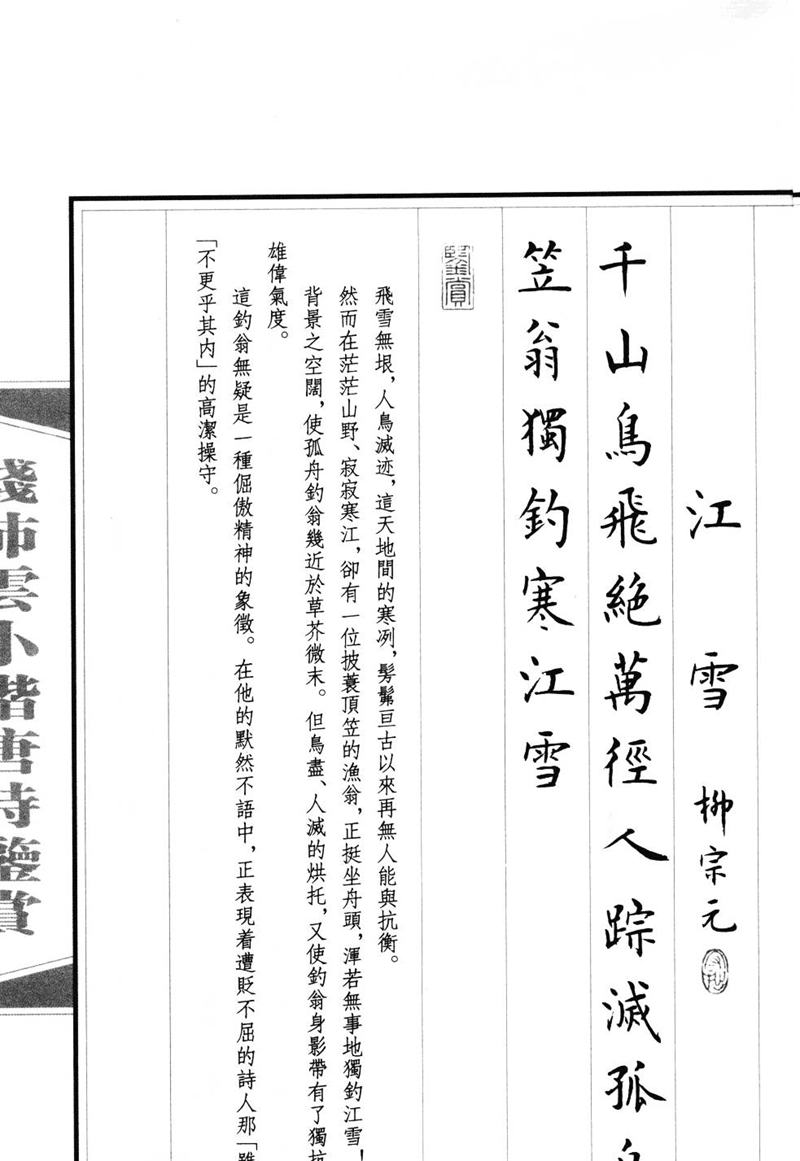 江雪 柳宗元
千山鳥飛絶萬徑人踪滅孤
笠翁獨釣寒江雪
鑒賞
飛雪無垠，人鳥滅迹，這天地間的寒冽，髣髴亘古以來再無人能與抗衡。
然而在茫茫山野、寂寂寒江，卻有一位披蓑頂笠的漁翁，正挺坐舟頭，渾若無事地獨釣江雪！
背景之空闊，使孤舟釣翁幾近於草芥微末。但鳥盡、人滅的烘托，又使釣翁身影帶有了獨抗
雄偉氣度。
這釣翁無疑是一種倔傲精神的象徵。在他的默然不語中，正表現着遭貶不屈的詩人那「雖
「不更乎其内」的高潔操守。
錢沛雲小楷唐詩鑒賞